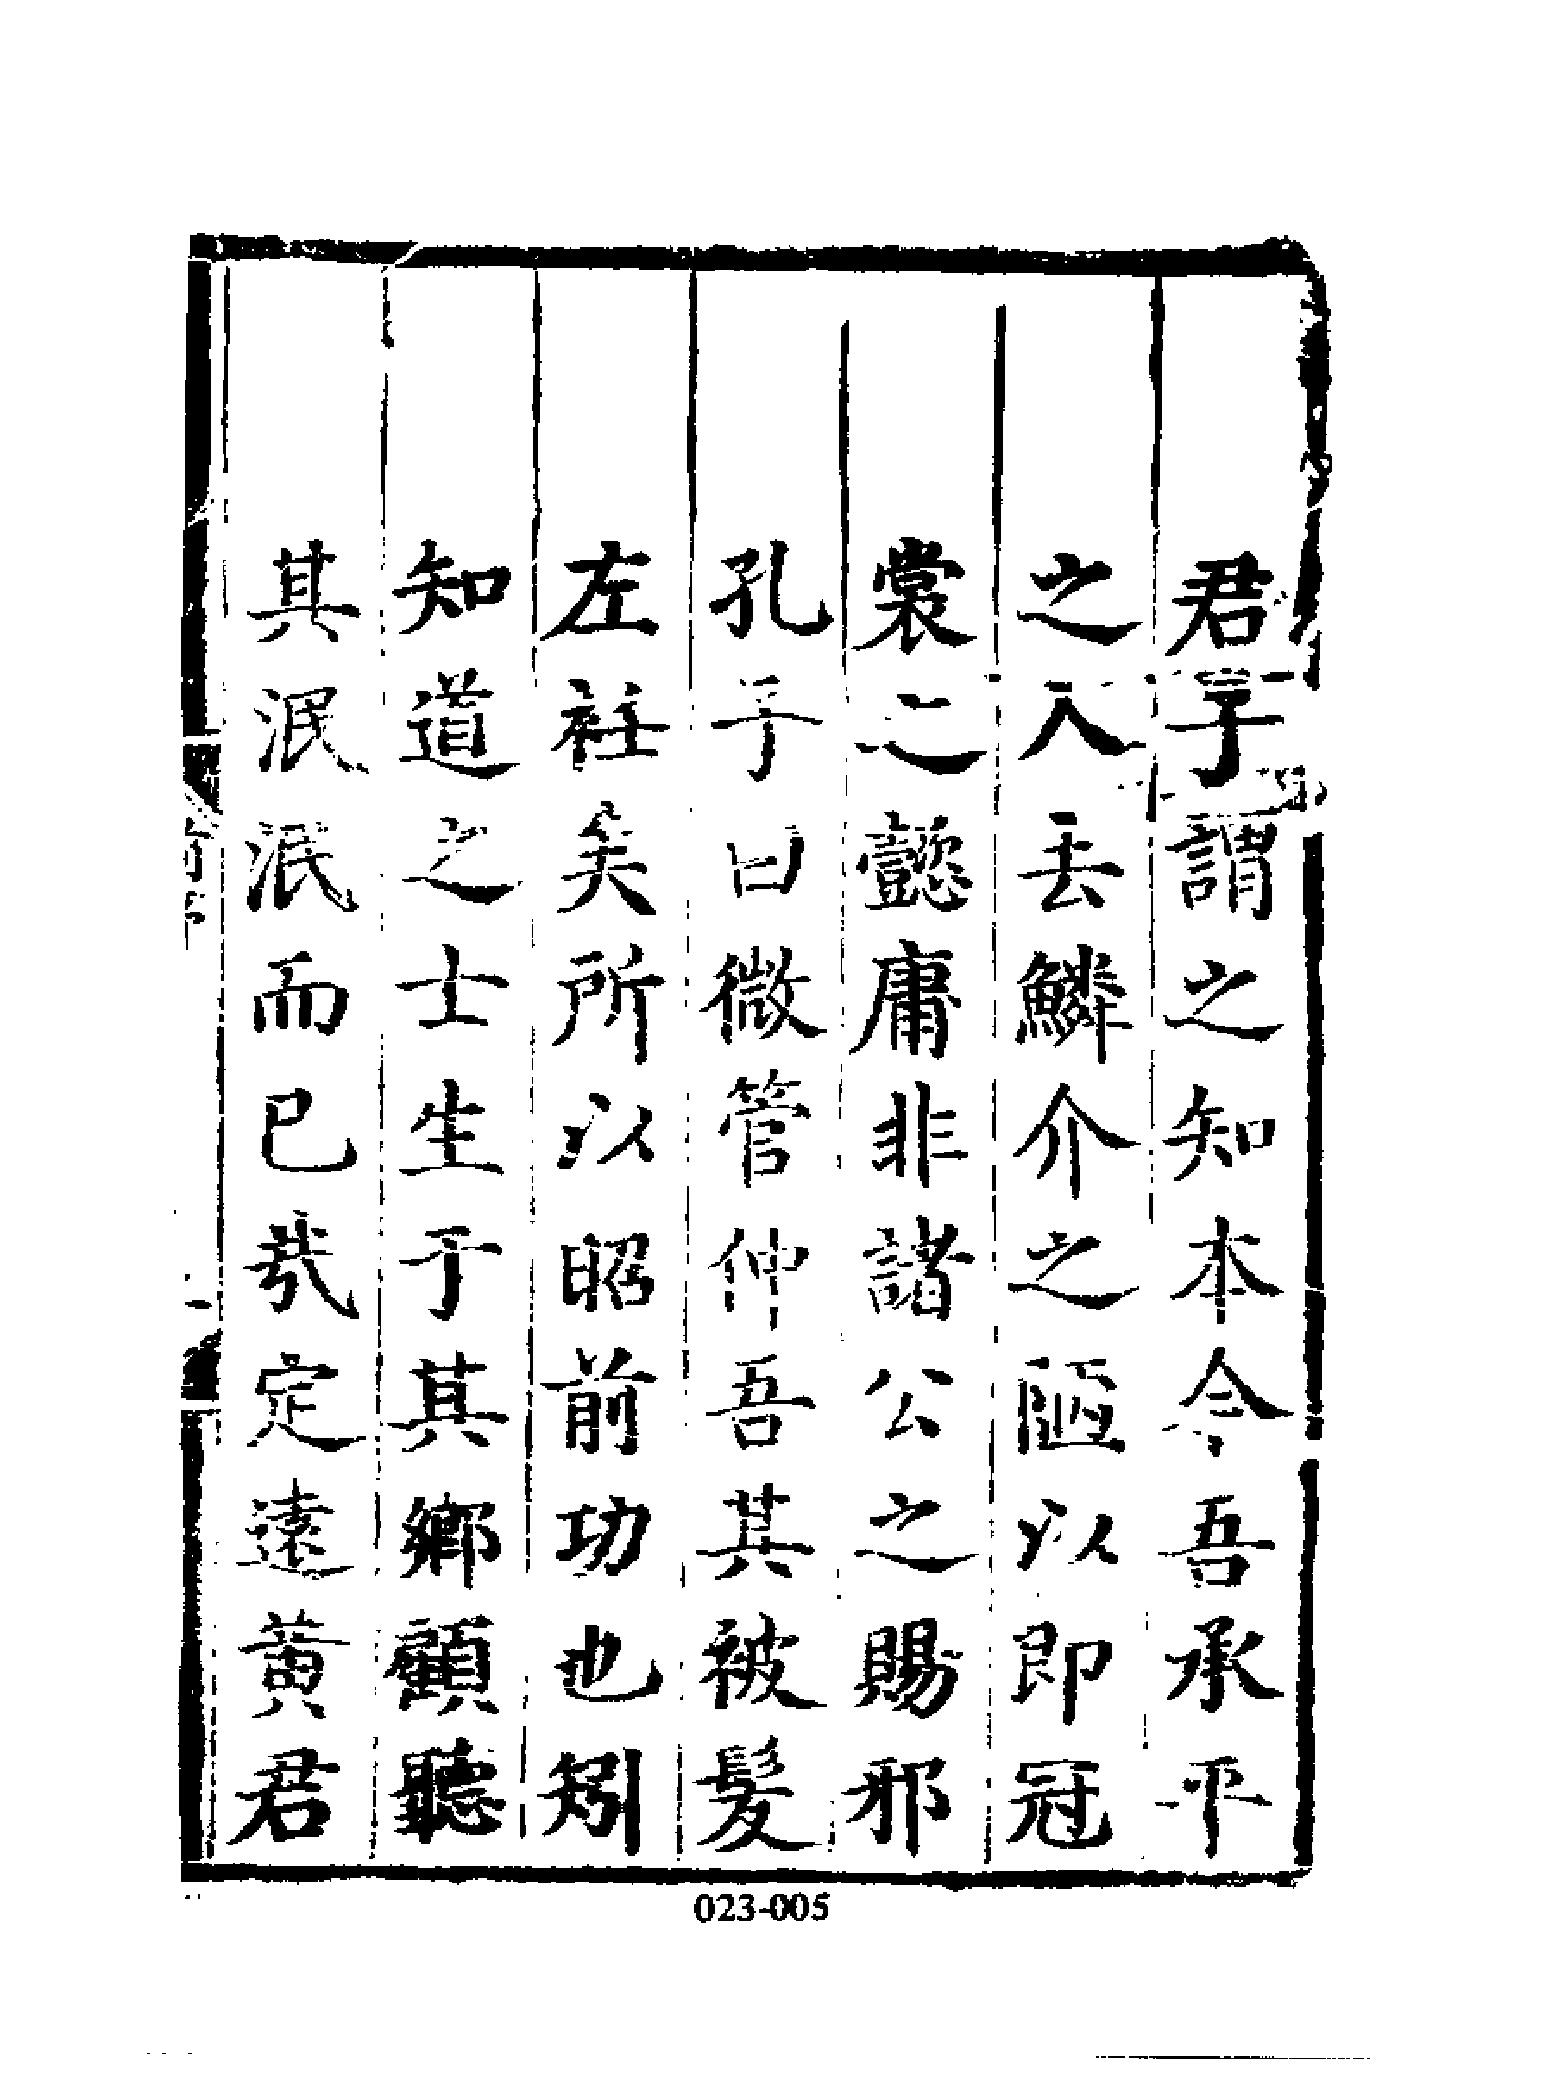 君子謂之知本今吾承平
之人去鱗介之陋以即冠
裳之懿庸非諸公之賜邪
孔子曰微管仲吾其被髮
左衽矣所以昭前功也矧
知道之士生于其鄉顧聽
其泯泯而已哉定遠黃君
023-005